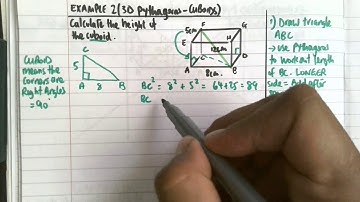 EXAMPLE 2 (3D Pythagoras - CUBOIDS)
Calculate the height of
the cuboid.
CUBOID
means the
corners are
Right Angles
= 90°
C
5
A 8 B
F
G
5cm
E
H
12cm
C
D
A
B
8cm
BC² = 8² + 5² = 64 + 25 = 89
BC
1) Draw triangle
ABC
→ use Pythagoras
to work out length
of BC. LONGER
side = Add after